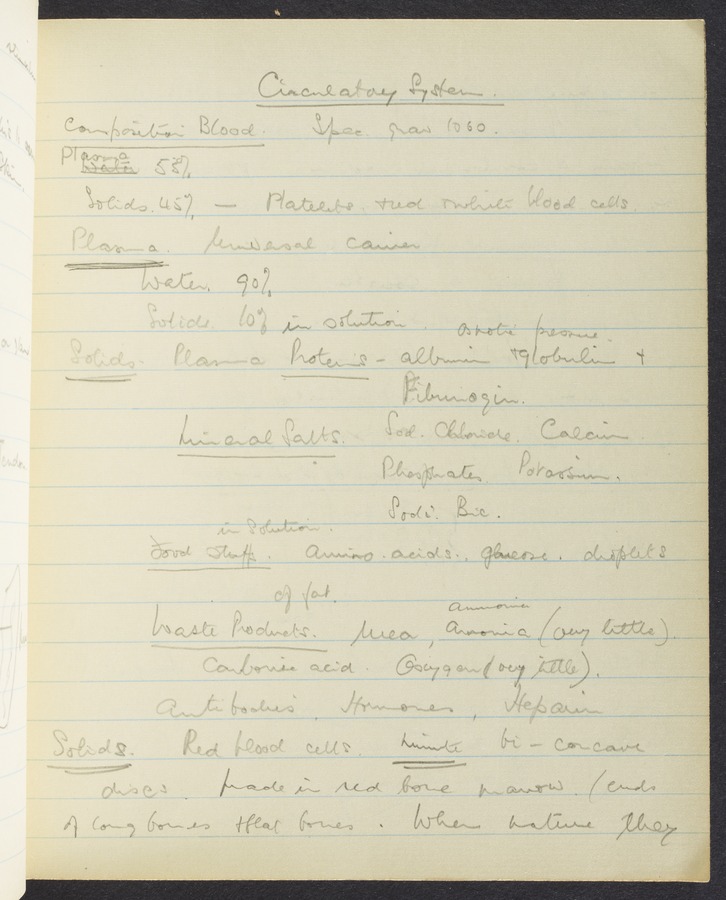 Circulatory System.
Composition Blood. Spec. grav 1060.
Plasma 55%
Solids. 45% — Platelets, + red + white blood cells.
Plasma. Universal carrier
Water. 90%
Solids 10% in solution. osmotic pressure.
Solids - Plasma Proteins - albumin + globulin +
Fibrinogin.
Mineral Salts. Sod. Chloride. Calcium
Phosphates. Potassium.
Sodi. Bic.
in Solution.
Food stuffs. Amino-acids., glucose. droplets
of fat.
ammonia
Waste Products. Urea, Ammonia (very little).
Carbonic acid. Oxygen (very little).
Antibodies, Hormones, Heparin
Solids. Red blood cells. Minute bi-concave
discs. Made in red bone marrow. (ends
of long bones + flat bones. When mature they